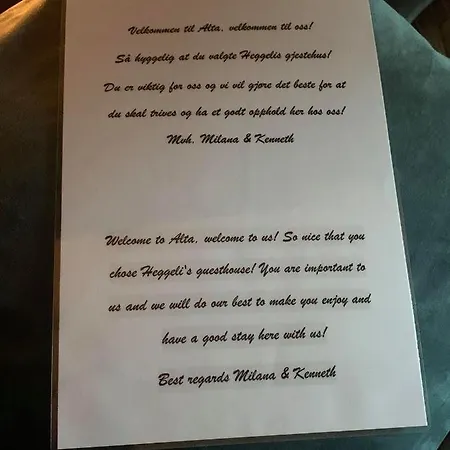 Velkommen til Alta, velkommen til oss!
Så hyggelig at du valgte Heggelis gjestehus!
Du er viktig for oss og vi vil gjøre det beste for at
du skal trives og ha et godt opphold her hos oss!
Mvh. Milana & Kenneth
Welcome to Alta, welcome to us! So nice that you
chose Heggeli's guesthouse! You are important to
us and we will do our best to make you enjoy and
have a good stay here with us!
Best regards Milana & Kenneth